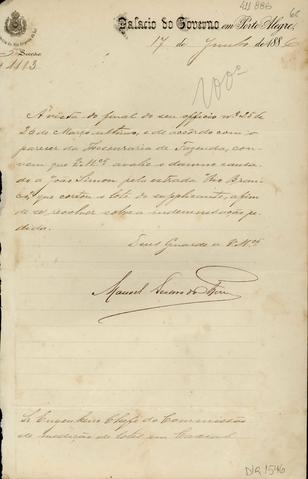 411 886
Palacio do Governo em Porto Alegre,
17 de Junho de 1886
2ª Secção
Nº 1113
Á vista do final do seu officio nº 25 de
20 de Março ultimo, e de accordo com o
parecer da Thesouraria de Fazenda, con-
vem que V. Mcê avalie o damno causa-
do a João Simon pela estrada Rio Bran-
co, que cortou o lote do supplicante, a fim
de se resolver sobre a indemnisação pe-
dida.
Deus Guarde a V. Mcê
Manoel
Sr. Engenheiro Chefe da Commissão
de medição de lotes em Caxias